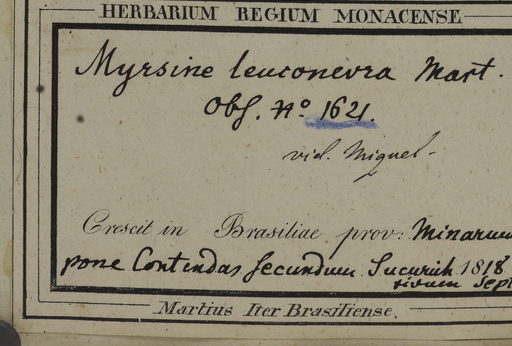 HERBARIUM REGIUM MONACENSE
Myrsine leuconevra Mart.
Obs. No 1621.
vid. Miquel.
Crescit in Brasiliae prov: Minarum
pone Contendas secundum Sucuriuh 1818
rivum Sept
Martius Iter Brasiliense.